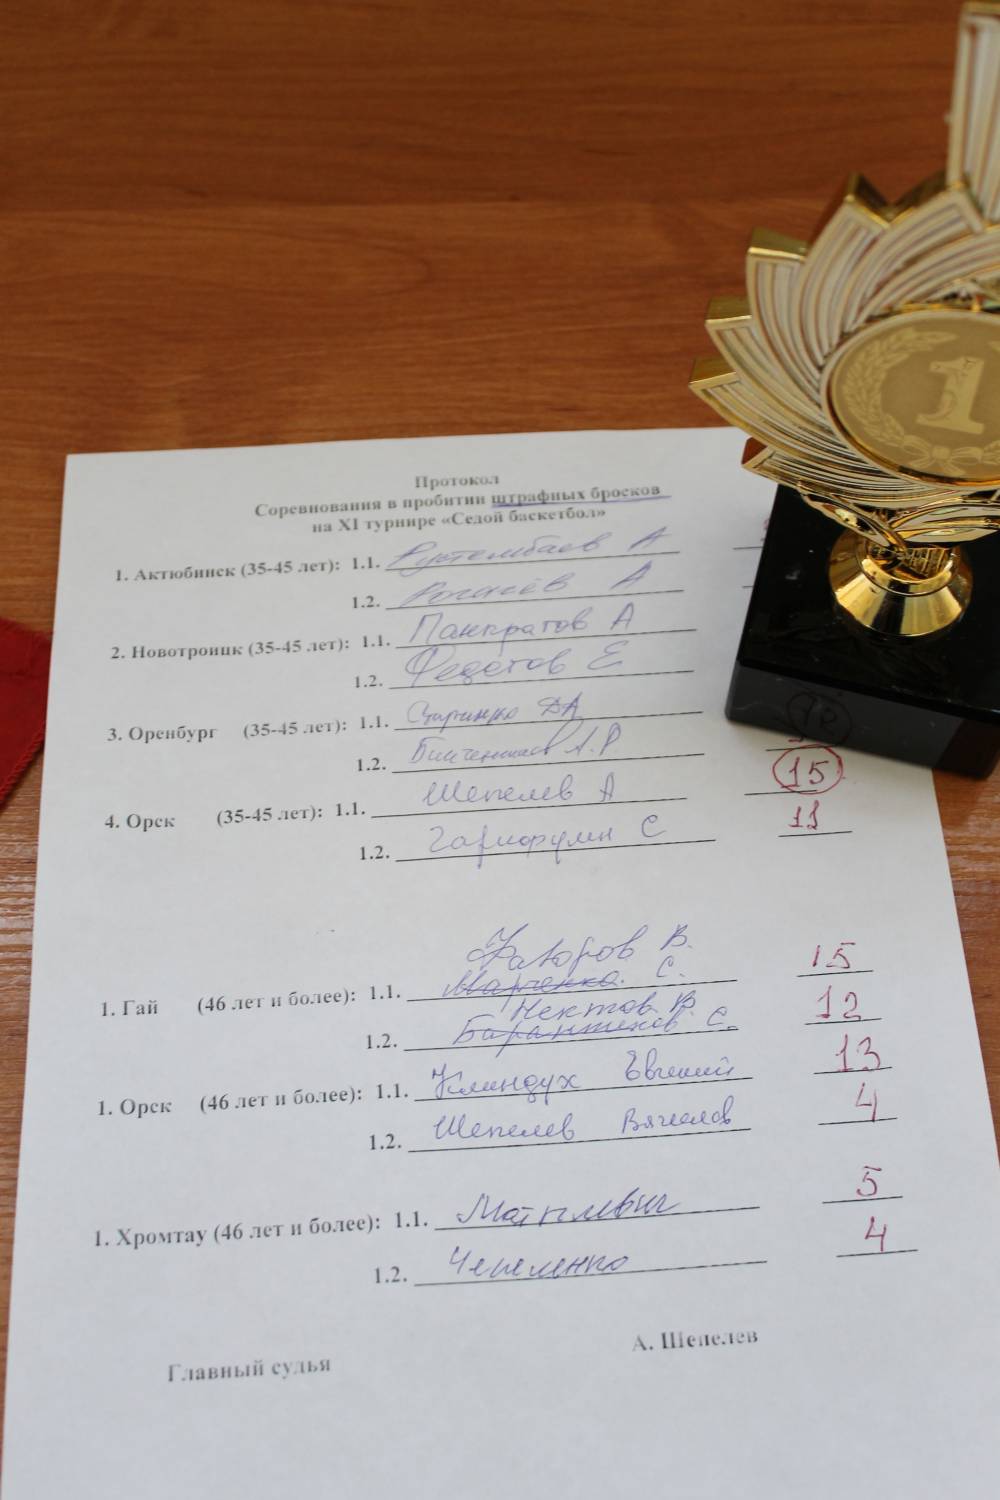 Протокол
Соревнования в пробитии штрафных бросков
на XI турнире «Седой баскетбол»
1. Актюбинск (35-45 лет): 1.1. А
1.2. А
2. Новотроицк (35-45 лет): 1.1. Панкратов А
1.2. Федотов Е
3. Оренбург (35-45 лет): 1.1.
1.2. А.Р.
4. Орск (35-45 лет): 1.1. Шепелев А 15
1.2. Гарифулин С 11
В.
1. Гай (46 лет и более): 1.1. Марченко С. 15
Нектов В.
1.2. С. 12
1. Орск (46 лет и более): 1.1. Климдух Евгений 13
1.2. Шепелев Вячеслав 4
1. Хромтау (46 лет и более): 1.1. 5
1.2. Чепеленко 4
Главный судья А. Шепелев
1